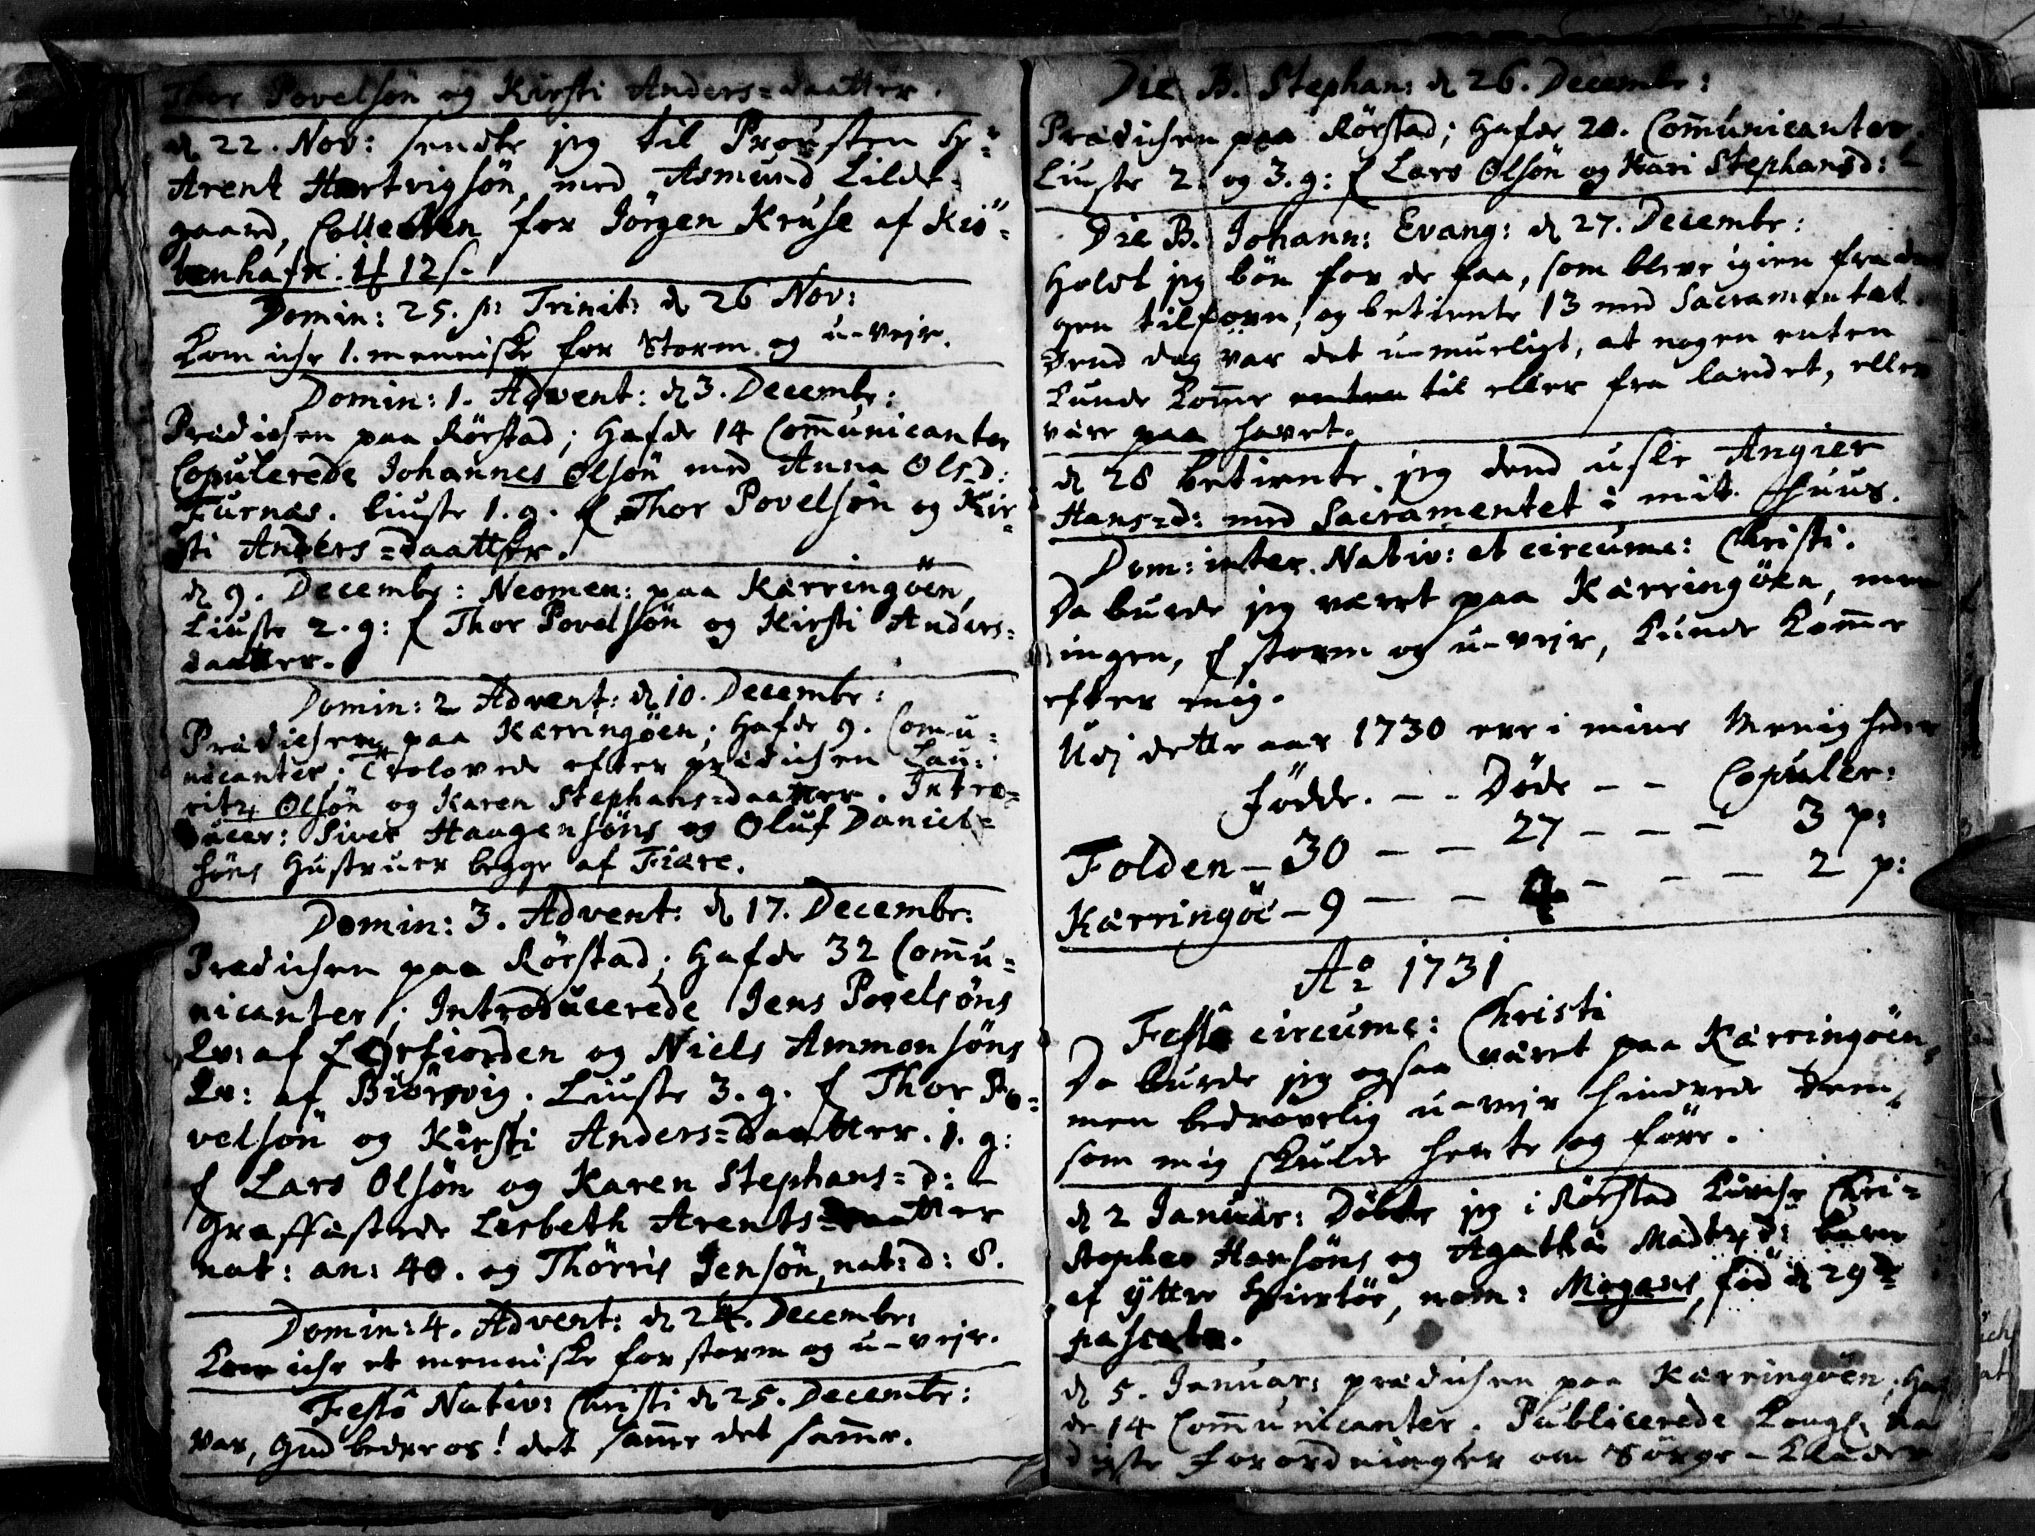 Thor Povelsøn og Kirsti Anders=daatter.
d 22. Nov: sendte jeg til Provsten Hr:
Arent Hartvigsøn, med Asmund Lilde=
gaard, Collecten for Jörgen Kruse af Kiö=
benhafn. 12 s.
Domin: 25. p: Trinit: d 26 Nov:
Kom iche 1. menniske for Storm og u-vejr.
Domin: 1. Advent: d 3. Decembr:
Prædichen paa Rörstad; Hafde 14 Com̄unicanter
Copulerede Johannes Olsøn med Anna Ols d:
Furnæs. Liuste 1. g. f Thor Povelsøn og Kir=
sti Anders=daatter.
d 9. Decembr: Neomen: paa Kærringöen,
Liuste 2. g: f Thor Povelsøn og Kirsti Anders=
daatter.
Domin: 2 Advent: d 10. Decembr:
Prædichen paa Kærringöen; Hafde 9. Comu=
nicanter. Trolovede efter prædichen Lau=
ritz Olsøn og Karen Stephans=daatter. Intro=
ducer: Siver Haagensöns og Oluf Daniel=
söns Hustruer begge af Fiære.
Domin: 3. Advent: d 17. Decembr:
Prædichen paa Rörstad; Hafde 32 Com̄u=
nicanter; Introducerede Jens Povelsöns
Qv: af Lerfiorden og Niels Ammonsöns
Qv: af Biörsvig. Liuste 3. g. f Thor Po=
velsøn og Kirsti Anders=daatter. 1. g:
f Lars Olsøn og Karen Stephans=d:
Graffæstede Lisbeth Arents=daatter
nat: an: 40. og Thörris Jensøn, nat: d: 8.
Domin: 4. Advent: d 24. Decembr:
Kom iche et menniske for storm og u-vejr.
Festô Nativ: Christi d 25. Decembr:
var, Gud bedre os! det sam̄e det sam̄e.
Die B. Stephan: d 26. Decembr:
Prædichen paa Rörstad; Hafde 20. Com̄unicanter.
Liuste 2. og 3. g: f Lars Olsøn og Kari Stephans d:
Die B. Johann: Evang: d 27. Decembr:
Holdt jeg bön for de faa, som bleve igien fra da=
gen tilforn, og betiente 13 med Sacramentet.
Dend dag var det u-mueligt, at nogen enten
kunde kom̄e enten til eller fra landet, eller
være paa havet.
d 28 betiente jeg dend usle Angier
Hans=d: med Sacramentet i mit Huus.
Dom: inter Nativ: et circumc: Christi.
Da burde jeg været paa Kærringöen, men
ingen, f storm og u-vejr, kunde kom̄e
efter mig.
Udj dette aar 1730 ere i mine Menigheder
Födde. - - Döde - - Copuler:
Folden - 30 - - 27 - - - 3 p:
Kærringöe - 9 - - 4 - - - 2 p:
Aº 1731
Festô circumc: Christi
Da burde jeg ogsaa været paa Kærringöen,
men bedrövelig u-vejr hindrede dem,
som mig skulde hente og före.
d 2 Januar: Döbte jeg i Rörstad Kirche Chri=
stopher Hansöns og Agatha Madtz d: barn
af yttre Hiertöe, nom: Mogens, föd d 29 de
passato.
d 5. Januar: prædichen paa Kærringöen, Haf=
de 14 Com̄unicanter. Publicerede Kongl: Na
digste Forordninger om Sörge-Klæder